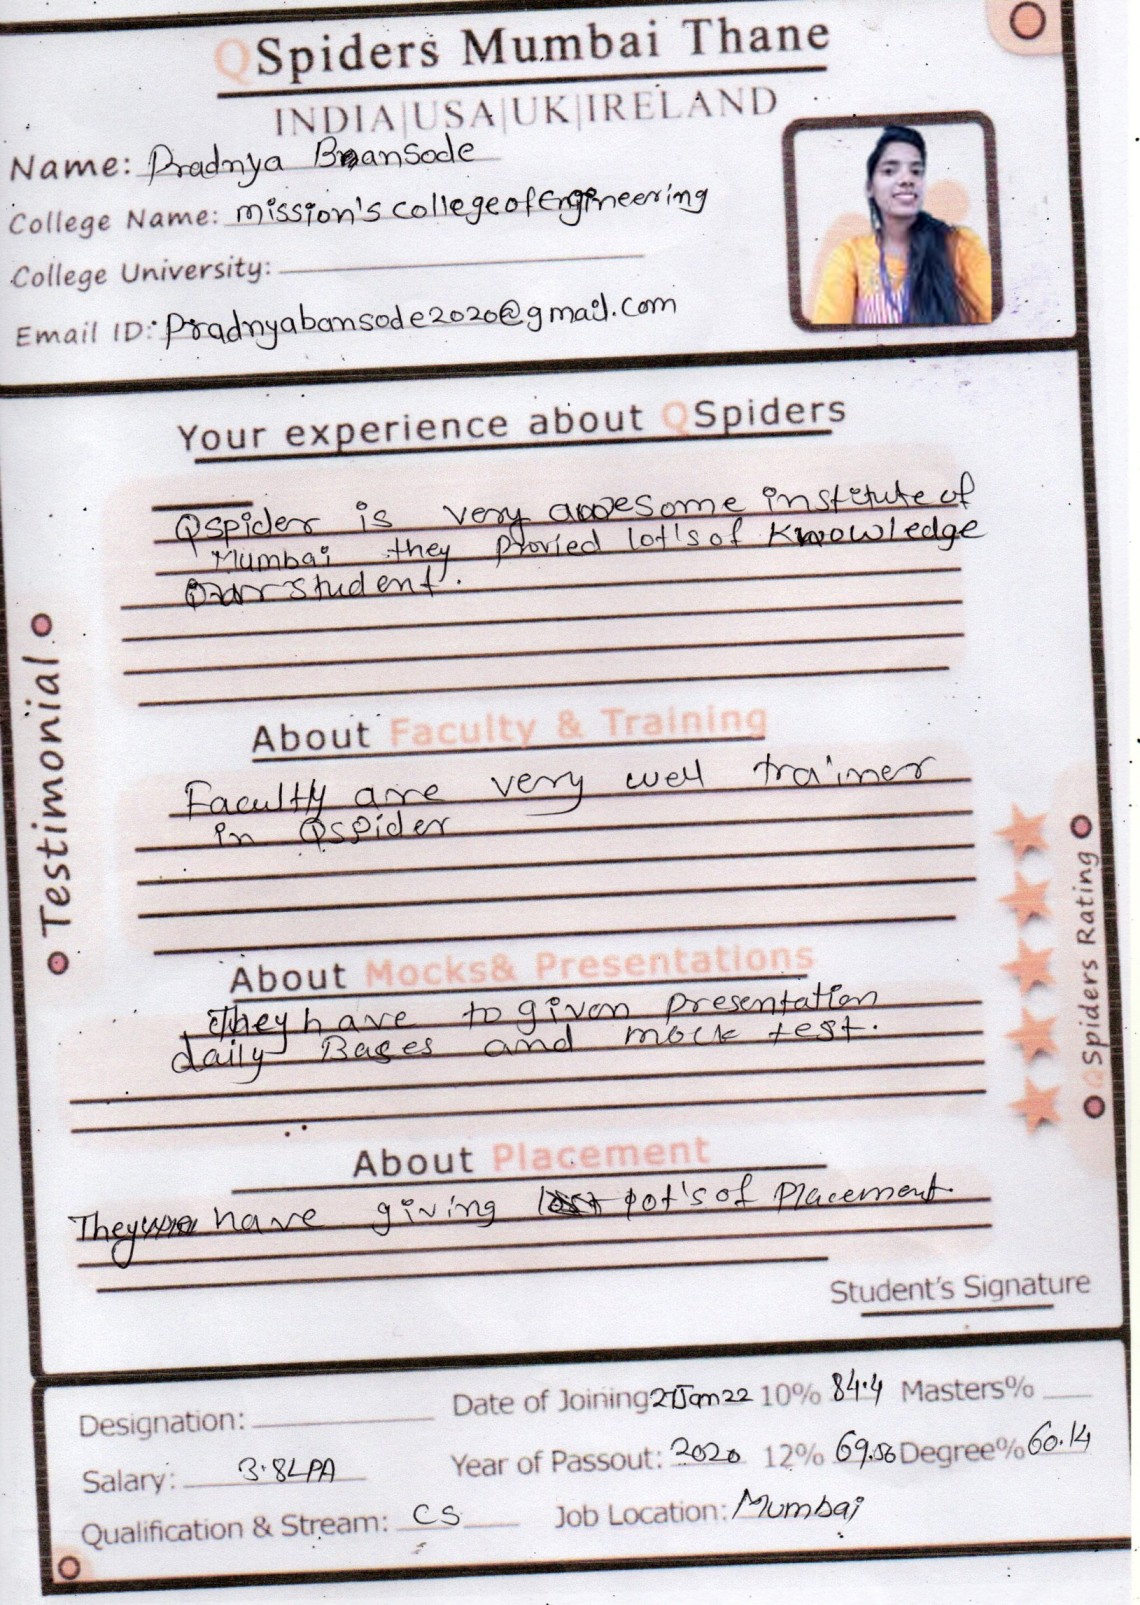 QSpiders Mumbai Thane
INDIA|USA|UK|IRELAND
Name: Pradnya Bansode
College Name: mission's college of Engineering
College University:
Email ID: Pradnyabansode2020@gmail.com
Your experience about QSpiders
Qspider is very awesome institute of
Mumbai they provied lot's of Knowledge
student.
About Faculty & Training
Faculty are very well trainer
in Qspider
About Mocks& Presentations
They have to given presentation
daily Bases and mock test.
About Placement
They have giving lot's of Placement.
Testimonial
QSpiders Rating
Student's Signature
Designation: Date of Joining 27Jan22 10% 84.4 Masters%
Salary: 3.8LPA Year of Passout: 2020 12% 69.56 Degree% 60.14
Qualification & Stream: CS Job Location: Mumbai